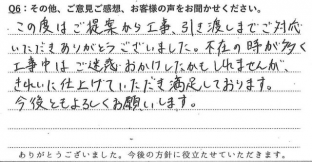 Q6：その他、ご意見ご感想、お客様の声をお聞かせください。
この度はご提案から工事、引き渡しまでご対応
いただきありがとうございました。不在の時が多く
工事中はご迷惑おかけしたかもしれませんが、
きれいに仕上げていただき満足しております。
今後ともよろしくお願いします。
ありがとうございました。今後の方針に役立たせていただきます。